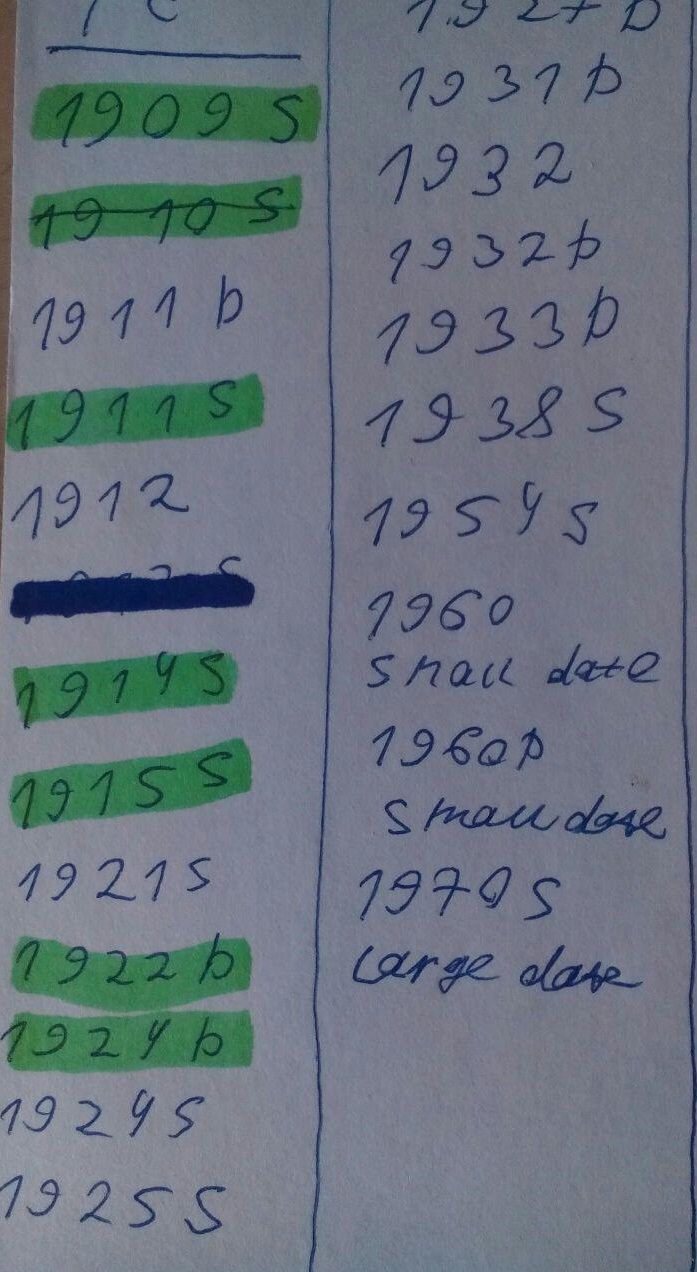 1 C
1909 S
1910 S
1911 D
1911 S
1912
1914 S
1915 S
1921 S
1922 D
1924 D
1924 S
1925 S
1927 D
1931 D
1932
1932 D
1933 D
1938 S
1954 S
1960
small date
1960 D
small date
1970 S
Large date